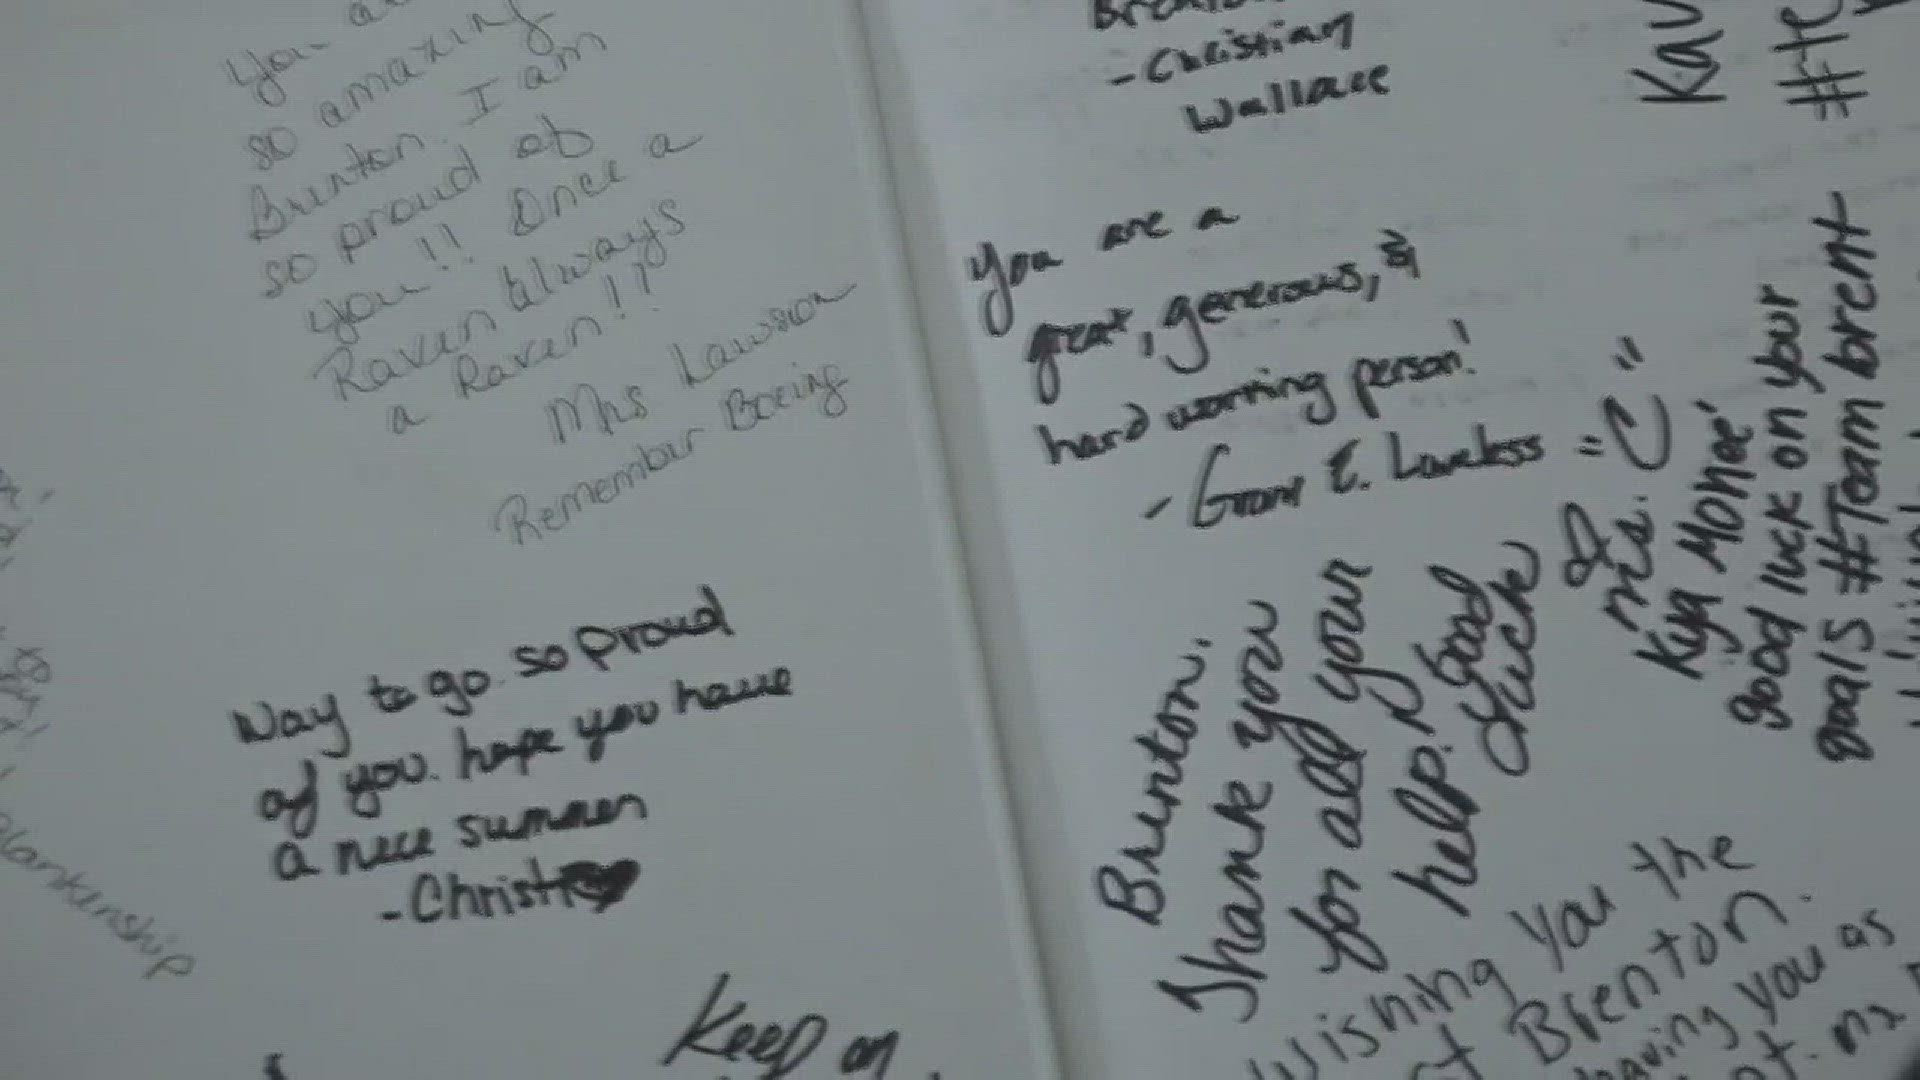 you
so amazing
Brenton. I am
so proud of
you!! Once a
Raven Always
a Raven!!
Mrs Lawson
Remember Boeing
Way to go. so proud
of you. hope you have
a nice summer
-Christ
Keep on
blankenship
-Christian
Wallace
You are a
great, generous, &
hard working person!
- Grant E. Loveless
Brenton.
Thank you
for all your
help! Good
Luck
Ms. "C"
Kya Moneé
good luck on your
goals #Team brent
Wishing you the
Brenton.
having you as